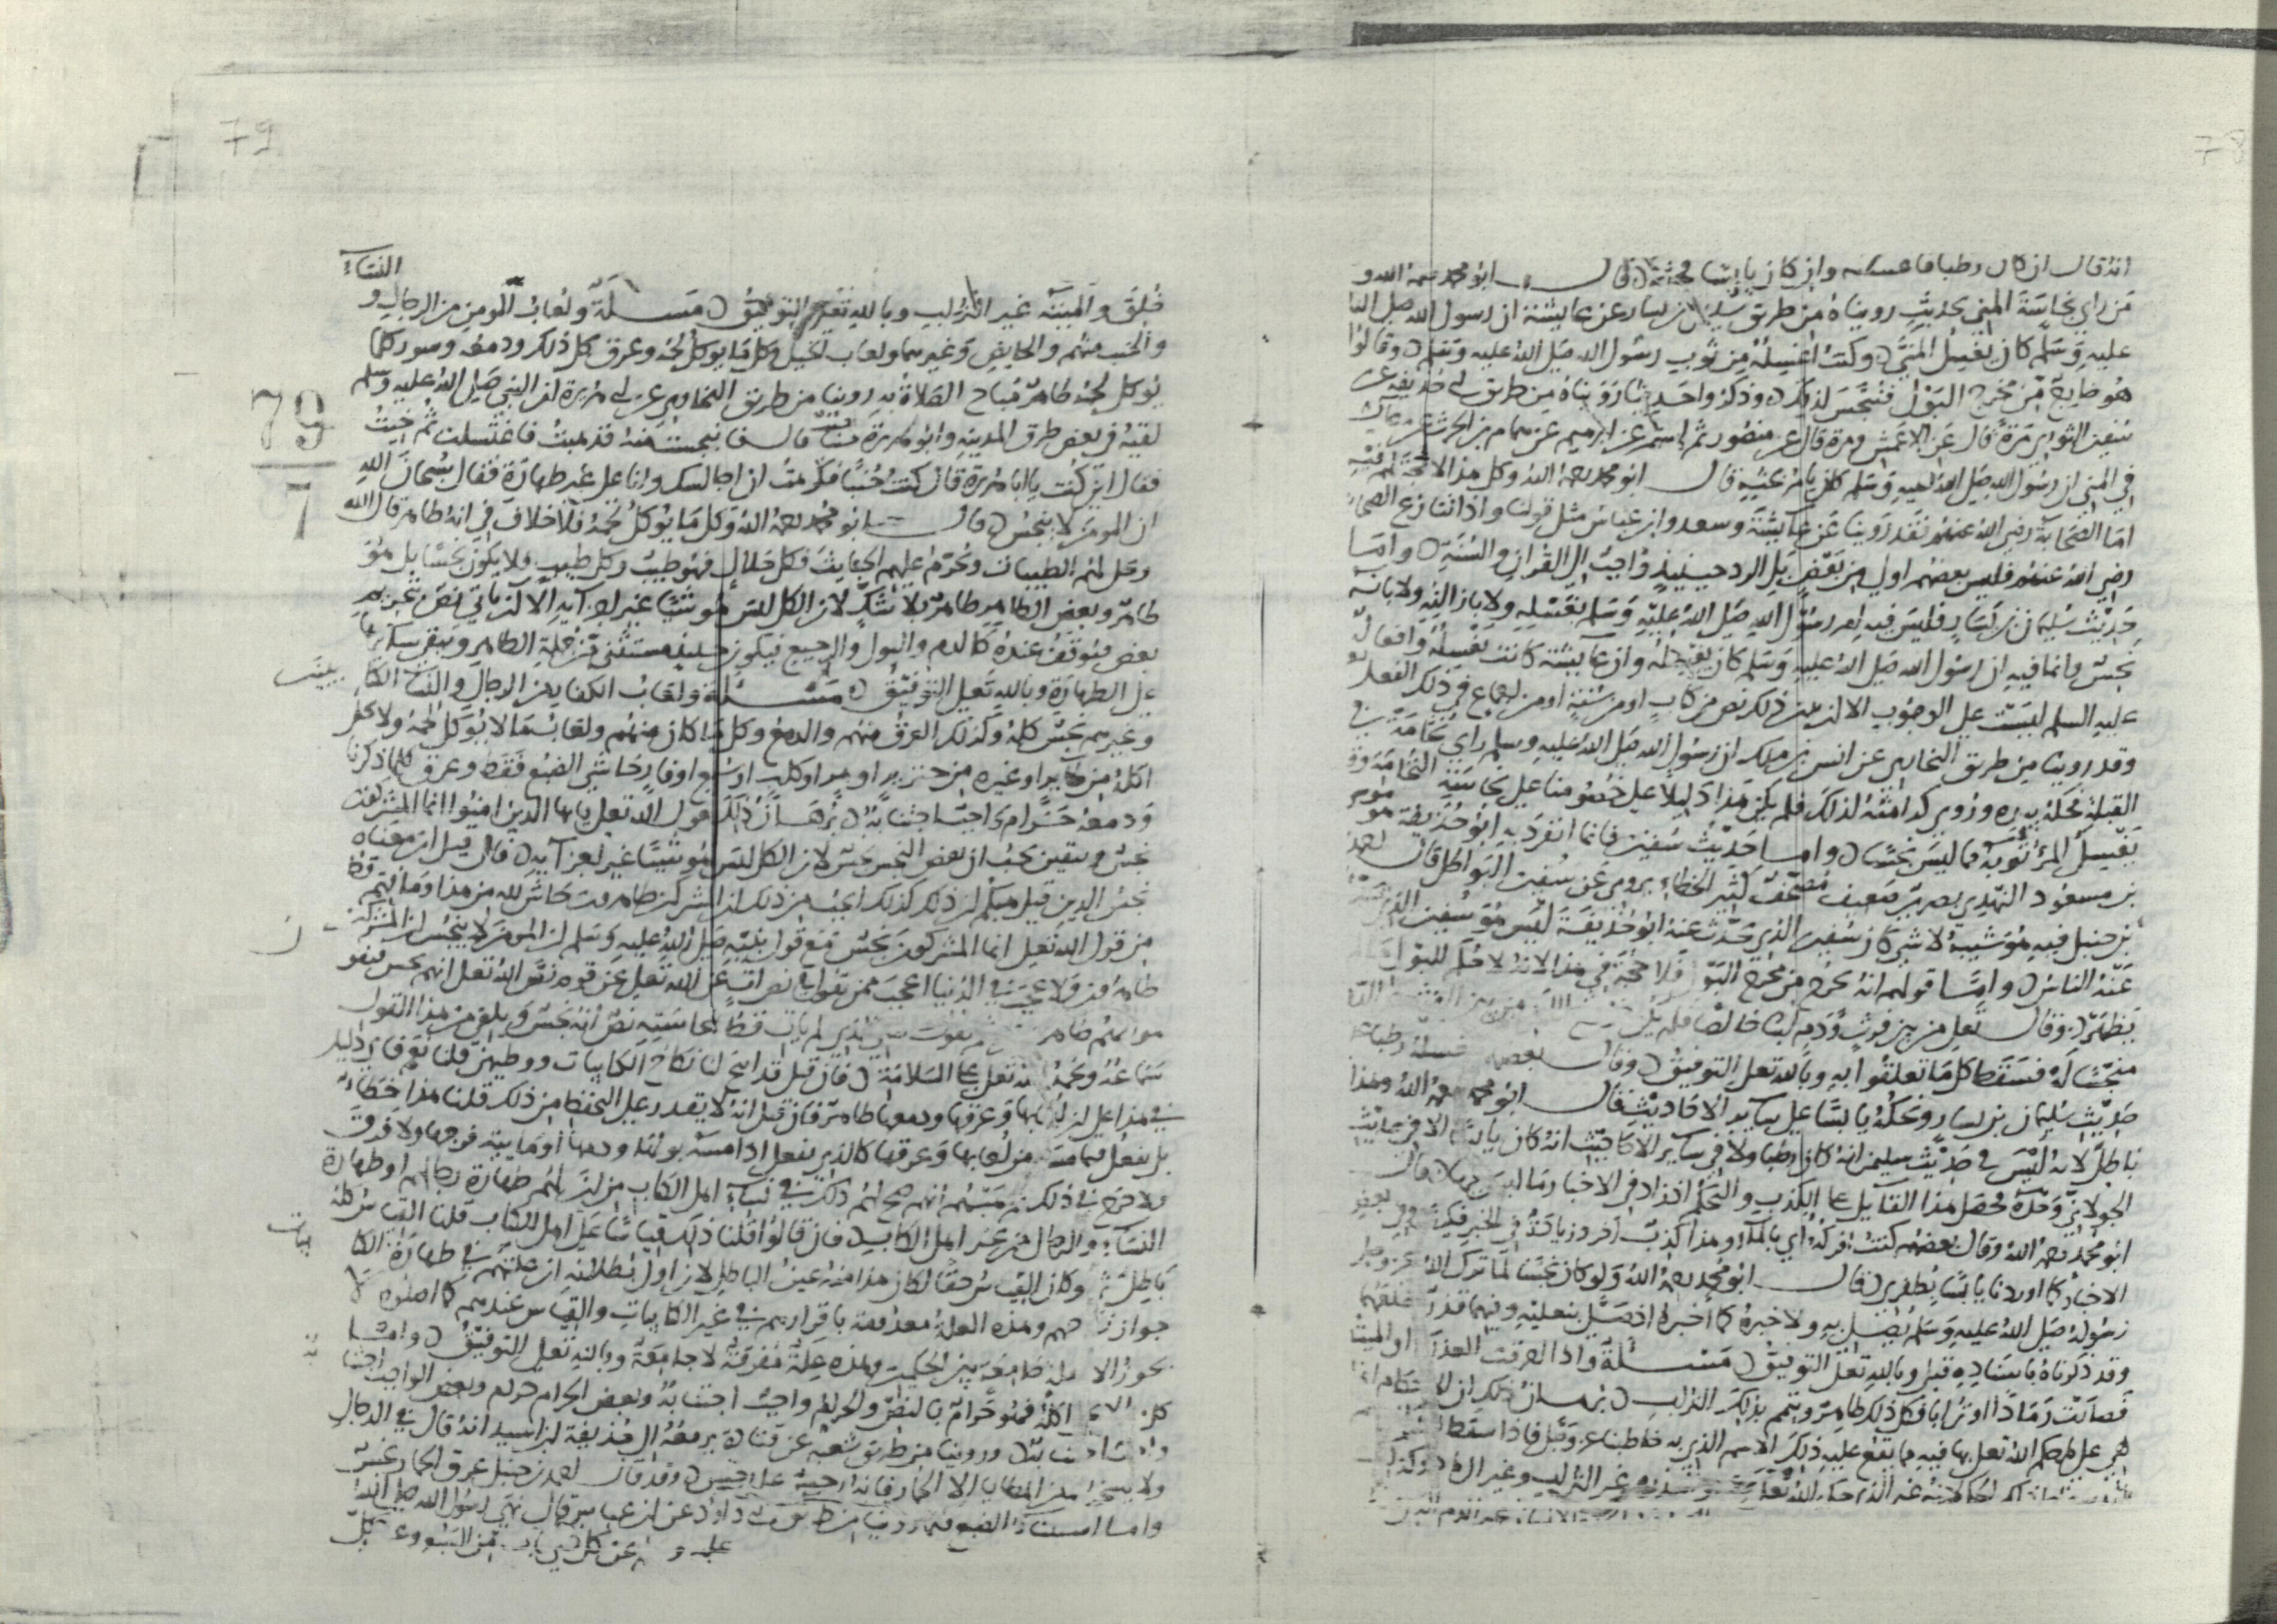 78
انه قال ان كان رطبا فاغسله وان كان يابسا فحته قال ابو محمد رحمه الله و
من راى نجاسة المني بحديث رويناه من طريق سليمان بن يسار عن عايشة ان رسول الله صلى الله
عليه وسلم كان يغسل المني وكنت اغسله من ثوب رسول الله صلى الله عليه وسلم وقالوا
هو خارج من مخرج البول فنتجس لذلك وذكروا حديثا رويناه من طريق ابي حذيفة عن
سفين الثوري مرة قال عن الاعمش ومرة قال عن منصور ثم استمر عن ابرهيم عن همام بن الحرث عن عايشة
في المني ان رسول الله صلى الله عليه وسلم كان يامر بحته قال ابو محمد رحمه الله وكل هذا لا حجة لهم فيه
اما الصحابة رضي الله عنهم فقد روينا عن عايشة وسعد وابن عباس مثل قولنا واذا تنازع الصحابة
رضي الله عنهم فليس بعضهم اولى من بعض بل الرد حينيذ واجب الى القران والسنة واما
حديث سليمن بن يسار فليس فيه امر رسول الله صلى الله عليه وسلم بغسله ولا بازالته ولا بانه
نجس وانما فيه ان رسول الله صلى الله عليه وسلم كان يغسله وان عايشة كانت تغسله وافعاله
عليه السلم ليست على الوجوب الا ان يبين ذلك نص من كتاب او من سنة او من اجماع في ذلك الفعل
وقد روينا من طريق البخاري عن انس بن ملك ان رسول الله صلى الله عليه وسلم راى نخامة في
القبلة فحكه بيده وروي كراهته لذلك فلم يكن هذا دليلا على خصومنا على نجاسة النخامة وقد
يغسل المرء ثوبه مما ليس نجسا واما حديث سفين فانما انفرد به ابو حذيفة موسى
بن مسعود النهدي بصري ضعيف مصحف كثير الخطاء يروي عن سفين البواطل قال احمد
بن حنبل فيه هو شبيه لا شي كان سفين الذي يحدث عنه ابو حذيفة ليس هو سفين الذي يحدث
عنه الناس واما قولهم انه يخرج من مخرج البول فلا حجة في هذا لانه لا حكم للبول
يظهر وقال تعلى من بين فرث ودم لبنا خالصا
منجسا له فسقط كل ما تعلقوا به وبالله تعلى التوفيق وقال بعضهم غسله رطبا على
حديث سليمن بن يسار ونحكه يابسا على ساير الاحاديث قال ابو محمد رحمه الله وهذا
باطل لانه ليس في حديث سليمن انه كان رطبا ولا في ساير الاحاديث انه كان يابسا الا في حديث
الخولاني وحده فحصل هذا القايل على الكذب والتحكم اذ زاد في الاخبار ما ليس فيها قال
ابو محمد رحمه الله وقال بعضهم كنت افركه اي بالماء وهذا كذب اخر وزيادة في الخبر فكيف وفي بعض
الاخبار كما اوردنا يابسا بظفري قال ابو محمد رحمه الله ولو كان نجسا لما ترك الله عز وجل
رسوله صلى الله عليه وسلم يصلي به ولاخبره كما اخبره اذ صلى بنعليه وفيهما قذر فخلعهما
وقد ذكرناه باسناده قبل وبالله تعلى التوفيق مسئلة واذا احرقت العذرة او الميتة
فصارت رمادا او ترابا فكل ذلك طاهر ويتيمم بذلك التراب برهان ذلك ان الاحكام انما
هي على ما حكم الله تعلى بها فيه مما يقع عليه ذلك الاسم الذي به خاطبنا عز وجل فاذا سقط
79
النساء
خلق والميتة غير التراب وبالله تعلى التوفيق مسئلة ولعاب المومن من الرجال و
والجنب منهم والحايض وغيرهما ولعاب الخيل وكل ما يوكل لحمه وعرق كل ذلك ودمعه وسور كلما
يوكل لحمه طاهر مباح الصلاة به روينا من طريق البخاري عن ابي هريرة ان النبي صلى الله عليه وسلم
لقيه في بعض طرق المدينة وابو هريرة جنب قال فانبجست منه فذهبت فاغتسلت ثم جيت
فقال اين كنت يا ابا هريرة قال كنت جنبا فكرهت ان اجالسك وانا على غير طهارة فقال سبحان الله
ان المومن لا ينجس قال ابو محمد رحمه الله وكل ما يوكل لحمه فلا خلاف في انه طاهر قال الله
ويحل لهم الطيبات ويحرم عليهم الخبايث فكل حلال فهو طيب وكل طيب فلا يكون نجسا بل هو
طاهر وبعض الطاهر طاهر بلا شك لان الكل ليس هو شيا غير ابعاضه الا ان ياتي نص بتحريم
بعض فيوقف عنده كالدم والبول والرجيع فيكون حينيذ مستثنى من جملة الطاهر ويبقى سايرها
على الطهارة وبالله تعلى التوفيق مسئلة ولعاب الكفار من الرجال والنساء الكتابيين
وغيرهم نجس كله وكذلك العرق منهم والدمع وكل ما كان منهم ولعاب كل ما لا يوكل لحمه ولا يحل
اكله من طاير او غيره من خنزير او هر او كلب او سبع او فار حاشى الضبع فقط وعرق كلما ذكرنا
ودمعه حرام واجب اجتنابه برهان ذلك قول الله تعلى يايها الذين امنوا انما المشركون
نجس وبيقين يجب ان بعض النجس نجس لان الكل ليس هو شيا غير ابعاضه فان قيل ان معناه
نجس الدين قيل هبكم ان ذلك كذلك ايجب من ذلك ان المشركين طاهرون حاش لله من هذا وما فهم قط
من قول الله تعلى انما المشركون نجس مع قول نبيه صلى الله عليه وسلم ان المومن لا ينجس ان المشركين
طاهرون ولا عجب في الدنيا اعجب ممن يقول في نص الله تعلى انهم نجس
79
7
سماعه ونحمد الله تعلى على السلامة فان قيل قد ابيح لنا نكاح الكتابيات ووطيهن قلنا نعم فاي دليل
في هذا على ان لعابها وعرقها ودمعها طاهر فان قيل انه لا يقدر على التحفظ من ذلك قلنا هذا خطاء
بل يفعل فيما مسه من لعابها وعرقها كالذي يفعل اذا مسه بولها ودمها او مايية فرجها ولا فرق
ولا حرج في ذلك ثم هبهم انهم صح لهم ذلك في نساء اهل الكتاب من اين لهم طهارة رجالهم او طهارة
النساء والرجال من غير اهل الكتاب فان قالوا قلنا ذلك قياسا على اهل الكتاب قلنا القياس كله
باطل ثم لو كان القياس حقا لكان هذا منه عين الباطل لان اول بطلانه ان علتهم في طهارة الكتابيات
جواز نكاحهن وهذه العلة معدومة باقرارهم في غير الكتابيات والقياس عندهم
لا يجوز الا بعلة جامعة بين الحكمين وهذه علة مفرقة لا جامعة وبالله تعلى التوفيق واما
كل ما لا يحل اكله فهو حرام بالنص والحرام واجب اجتنابه وبعض الحرام حرام وبعض الواجب اجتنابه
واجب اجتنابه وروينا من طريق شعبة عن قتادة يرفعه الى حذيفة بن اسيد انه قال في الدجال
ولا يسخر له من المطايا الا الحمار فانه رجس على رجس وقد قال احمد بن حنبل عرق الحمار نجس
واما استثناء الضبع فلما روينا من طريق ابي داود عن ابن عباس قال نهى رسول الله صلى الله
عليه و عن كل ذي ناب من السبع وعن كل